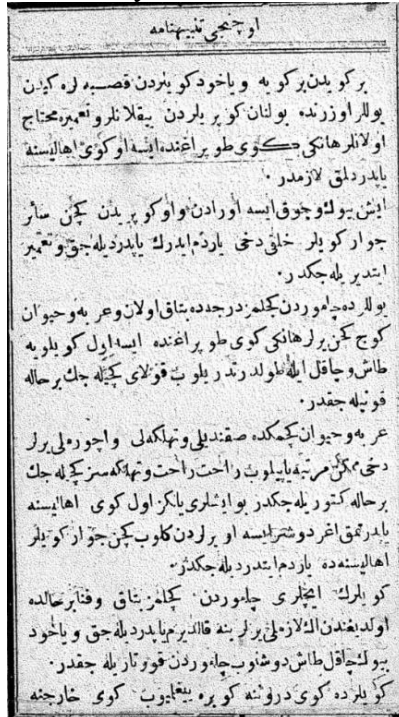 اوچنجی تنبیهنامه
بر كویدن بر كویه و یاخود كویلردن قصبه لره كیدن
یوللر اوزرنده بولنان كوپریلردن ییقلانلر و تعمیره محتاج
اولانلر هانكی كوی طوپراغنده ایسه او كوی اهالیسنه
یاپدردلمق لازمدر ٠
ایش بیوك و چوق ایسه اورادن و او كوپریدن كچن سائر
جوار كویلر خلقی دخی یاردم ایدرك یاپدردیله جق و تعمیر
ایتدیریله جكدر ٠
یوللرده چاموردن كچلمز درجه ده بتاق اولان و عربه و حیوان
كوج كچن یرلر هانكی كوی طوپراغنده ایسه اول كویلویه
طاش و چاقل ایله طولدرتدریلوب قولای كچیله جك بر حاله
قونیله جقدر ٠
عربه و حیوان كچمكده صقندیلی و تهلكه لی و اچورملی یرلر
دخی ممكن مرتبه یاپیلوب راحت راحت و تهلكه سز كچیله جك
بر حاله كتوریله جكدر بو ایشلری یالكز اول كوی اهالیسنه
یاپدرتمق اغر دوشرایسه او یرلردن كلوب كچن جوار كویلر
اهالیسنه ده یاردم ایتدردیله جكدر ٠
كویلرك ایچلری چاموردن كچلمز بتاق و فنا بر حالده
اولدیغندن الك لازملی یرلرینه قالدیرم یاپدردیله جق و یاخود
بیوك چاقل طاش دوشنوب چاموردن قورتاریله جقدر ٠
كویلرده كوی دروننه كوبره ییغلمیوب كوی خارجنه